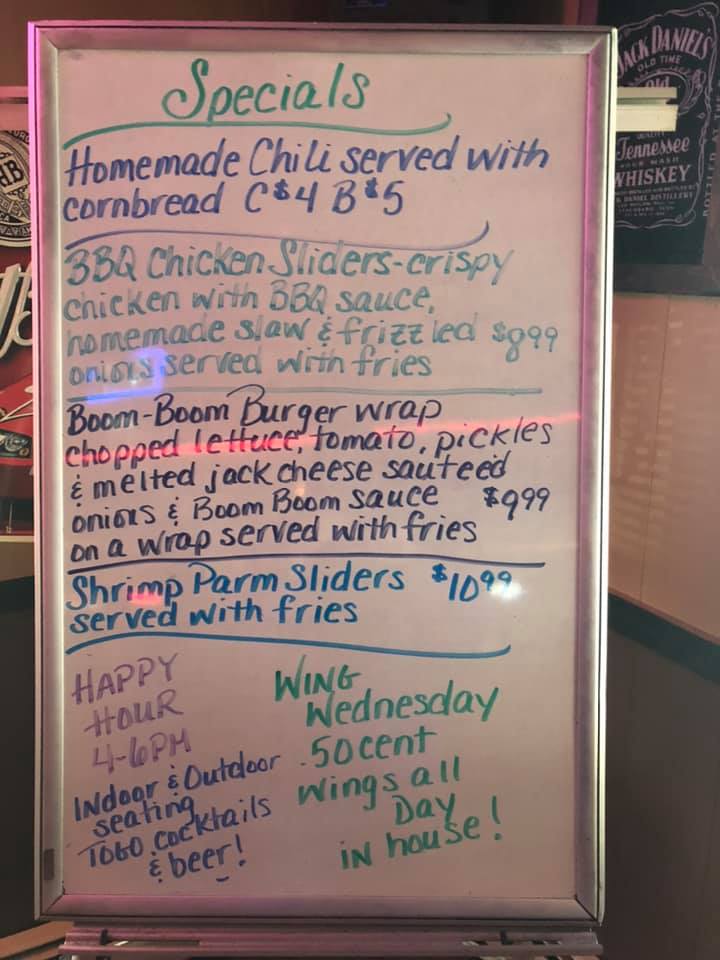 Specials
Homemade Chili served with
cornbread C$4 B$5
BBQ Chicken Sliders-crispy
chicken with BBQ sauce,
homemade slaw & frizzled $8.99
onions served with fries
Boom-Boom Burger wrap
chopped lettuce, tomato, pickles
& melted jack cheese sauteed
onions & Boom Boom sauce $9.99
on a wrap served with fries
Shrimp Parm Sliders $10.99
served with fries
HAPPY
HOUR
4-6PM
Indoor & Outdoor
seating
TOGO cocktails
& beer!
WING
Wednesday
.50 cent
wings all
Day
in house!
JACK DANIEL'S
OLD TIME
Tennessee
WHISKEY